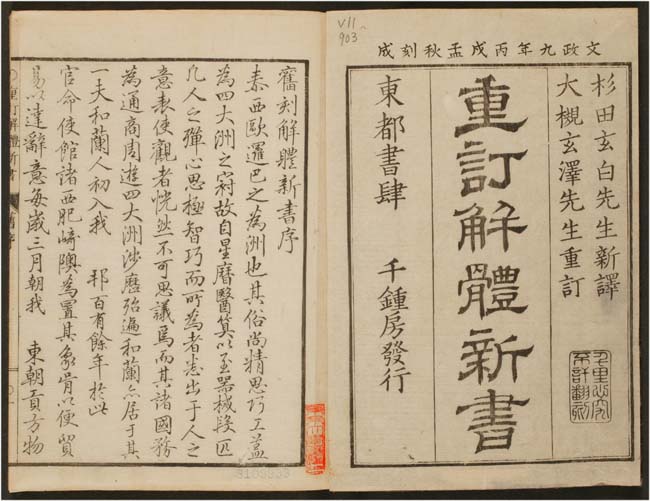 V11
903
文政九年丙戌孟秋刻成
杉田玄白先生新譯
大槻玄澤先生重訂
重訂解體新書
東都書肆 千鍾房發行
千里必究
不許翻刻
舊刻解體新書序
泰西歐邏巴之為洲也其俗尚精思巧工蓋
為四大洲之冠故自星曆醫算以至器械技匠
凡人之殫心思極智巧而所為者悉出于人之
意表使觀者恍然不可思議焉而其諸國務
為通商周遊四大洲涉歷殆遍和蘭亦居于其
一夫和蘭人初入我 邦百有餘年於此
官命使館諸西肥崎陽為置其象胥以便貿
易以達辭意每歲三月朝我 東朝貢方物
重訂解體新書 舊序